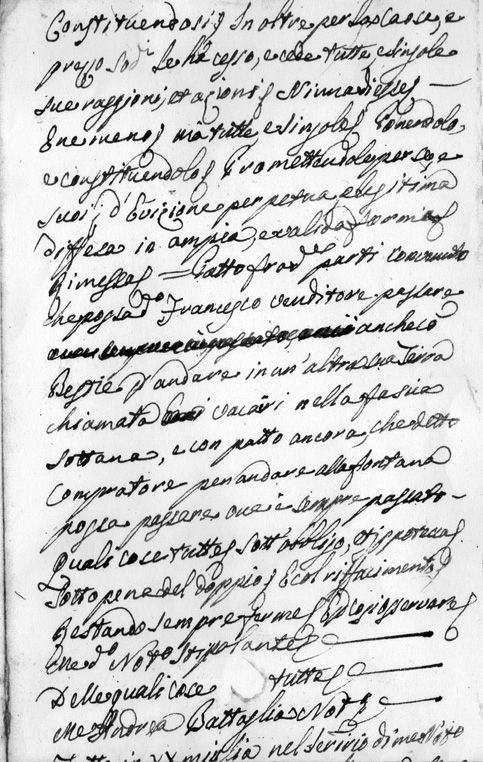 Constituendosi In oltre per lo Casse, e
presso sodi le ha cesso, e cede tutte, e singole
sue raggioni, et azioni Niuna d'esse
Ene meno ma tutte, e singole Ponendolo,
e constituendolo Promettendole per se, e
suoi d'evizione perpetua, e legitima
diffesa in ampia, e valida forma
Rimessa = Patto fra de parti convenuto
che possa do Francesco venditore passare
anche co
Bestie p andare in un' altra sua Terra
chiamata vacari nella fascia
sottana, e con patto ancora, che detto
Compratore per andare alla fontana
possa passare ove è sempre passato -
Quali cose tutte sott' obligo, et ippoteca
Sotto pena del doppio Ecol riffacimento
Restando sempre ferme osservare
Ene do Noto stipolante
Delle quali cose tutte
Me Andrea Battaglia Noto
in nel servizio di me Noto